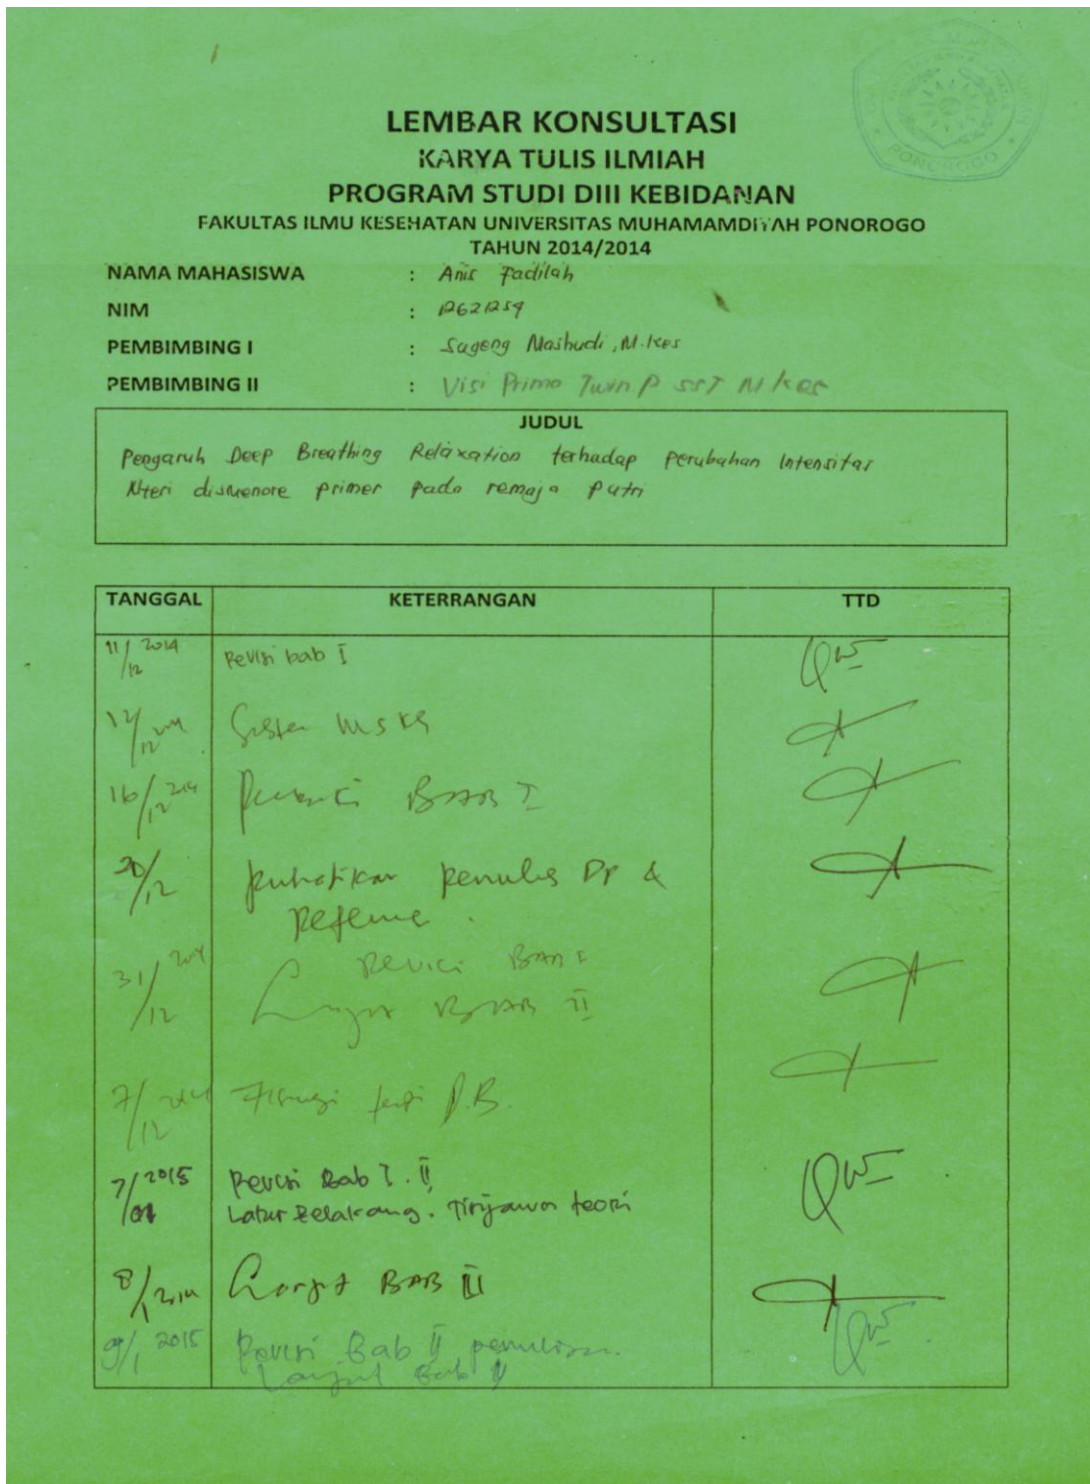 PONOROGO
LEMBAR KONSULTASI
KARYA TULIS ILMIAH
PROGRAM STUDI DIII KEBIDANAN
FAKULTAS ILMU KESEHATAN UNIVERSITAS MUHAMAMDIYAH PONOROGO
TAHUN 2014/2014
NAMA MAHASISWA : Anis Fadilah
NIM :
PEMBIMBING I : Sugeng Mashudi, M.Kes
PEMBIMBING II : Visi Prima Twin P SST M Kes
JUDUL
Pengaruh Deep Breathing Relaxation terhadap perubahan Intensitas
Nyeri dismenore primer pada remaja putri
TANGGAL KETERRANGAN TTD
11/12 2014 Revisi bab I
12/12
16/12 BAB I
20/12 penulis Dp &
31/12 Revisi BAB I
BAB II
7/12
7/01 2015 Revisi Bab I. II
Latar Belakang. Tinjauan teori
8/1 Lanjut BAB III
9/1 2015 Revisi Bab II penulisan
Lanjut Bab